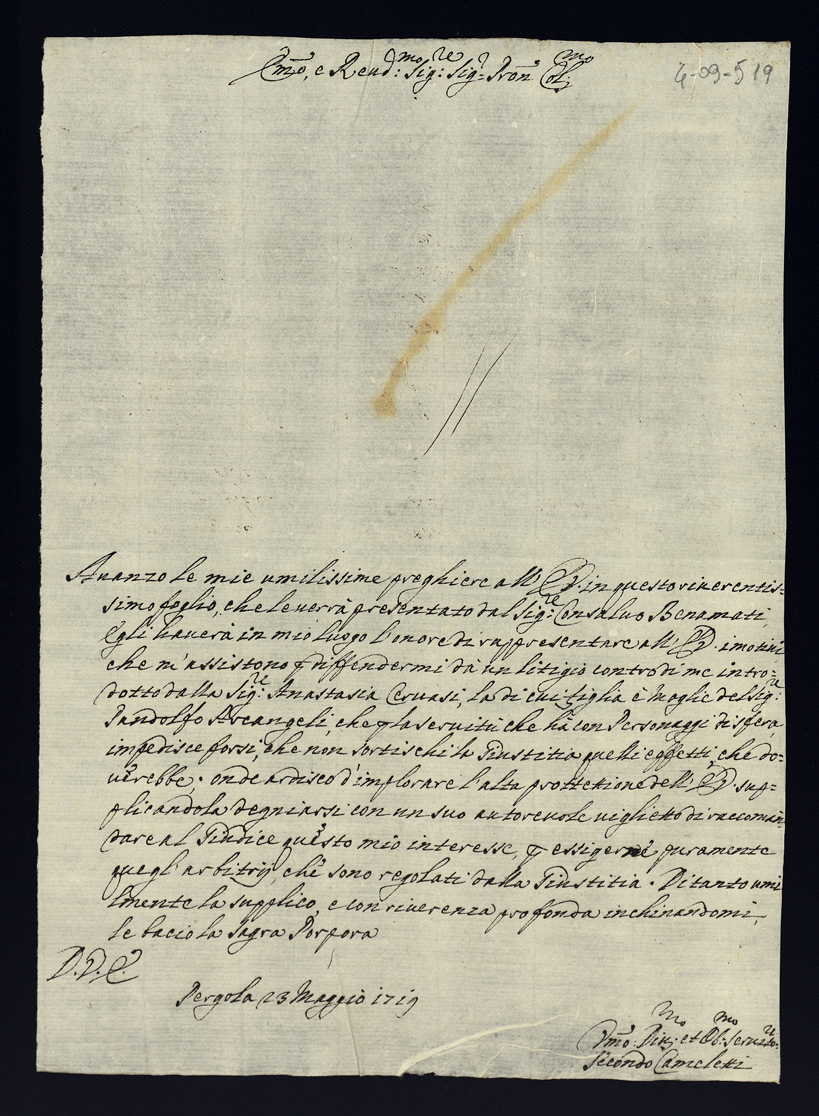 Em̃o, e Reud:mo Sig:re Sig:r Pron̄ Col:mo
4-09-519
Auanzo le mie umilissime preghiere all' E.V. in questo riuerentis=
simo foglio, che le uerrà presentato dal Sig:re Consaluo Benamati,
Egli hauerà in mio luogo l'onore di rappresentare all' E.V. i motiui
che m'assistono p diffendermi da un litigio contro di me intro=
dotto dalla Sig:re Anastasia Cruasi, la di cui figlia è Moglie del Sig:re
Pandolfo Arcangeli, che p la seruitù che hà con Personaggi di sfera,
impedisce forsi, che non sortischi la Giustitia quelli effetti, che do=
uerebbe; onde ardisco d'implorare l'alta prottetione dell' E.V. sup=
plicandola degniarsi con un suo autoreuole uiglietto di raccoman=
dare al Giudice questo mio interesse, p essigerne puramente
quegl'arbitrij, che sono regolati dalla Giustitia. Di tanto umi
lmente la supplico, e con riuerenza profonda inchinandomi,
le bacio la Sagra Porpora
D.V.E.
Pergola 23 Maggio 1719
Vm̃o: Diu:mo et Ob:mo Seruit:re
Secondo Cameletti